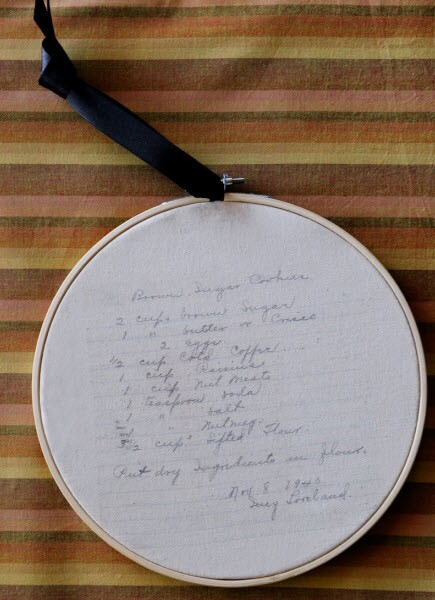 Brown Sugar Cookies
2 cups brown Sugar
1 " butter or Crisco
2 eggs
1/2 cup Cold Coffee
1 cup Raisins
1 cup Nut Meats
1 teaspoon soda
1 " salt
" Nutmeg
3 1/2 cups Sifted Flour.
Put dry Ingredients in flour.
Nov 8 1940
Loveland.